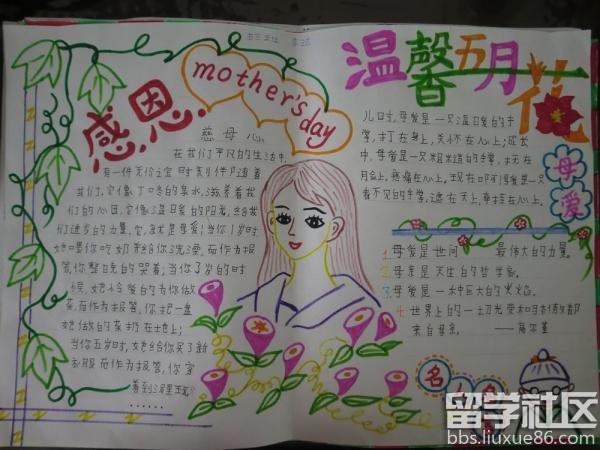 感恩
mother's day
慈母心
在我们平凡的生活中,
有一件无价之宝时刻伴随着
我们,它像叮咚的泉水,滋养着我
们的心田,它像温暖的阳光,给我
们进步的力量,它,就是母爱;当你1岁时,
她喂你吃奶并给你洗澡,而作为报
答,你整晚的哭着,当你3岁的时
候,她怜爱的为你做
菜,而作为报答,你把一盘
她做的菜扔在地上;
当你五岁时,她给你买了新
衣服而作为报答,你穿
着到泥里玩
……
温馨五月花
儿日寸,母爱是一只温暖的手
掌,打在身上,关怀在心上;成长
中,母爱是一只粗糙的手掌,抚在
月佥上,疼痛在心上,现在
看不见的手掌,遮在天上,牵挂在心上。
母爱
1. 母爱是世间 最伟大的力量。
2. 母亲是天生的哲学备。
3. 母爱是一种巨大的火焰。
4. 世界上的一切光荣和骄傲都
来自母亲。 ——高尔基
名人
留学社区
bbs.liuxue86.com